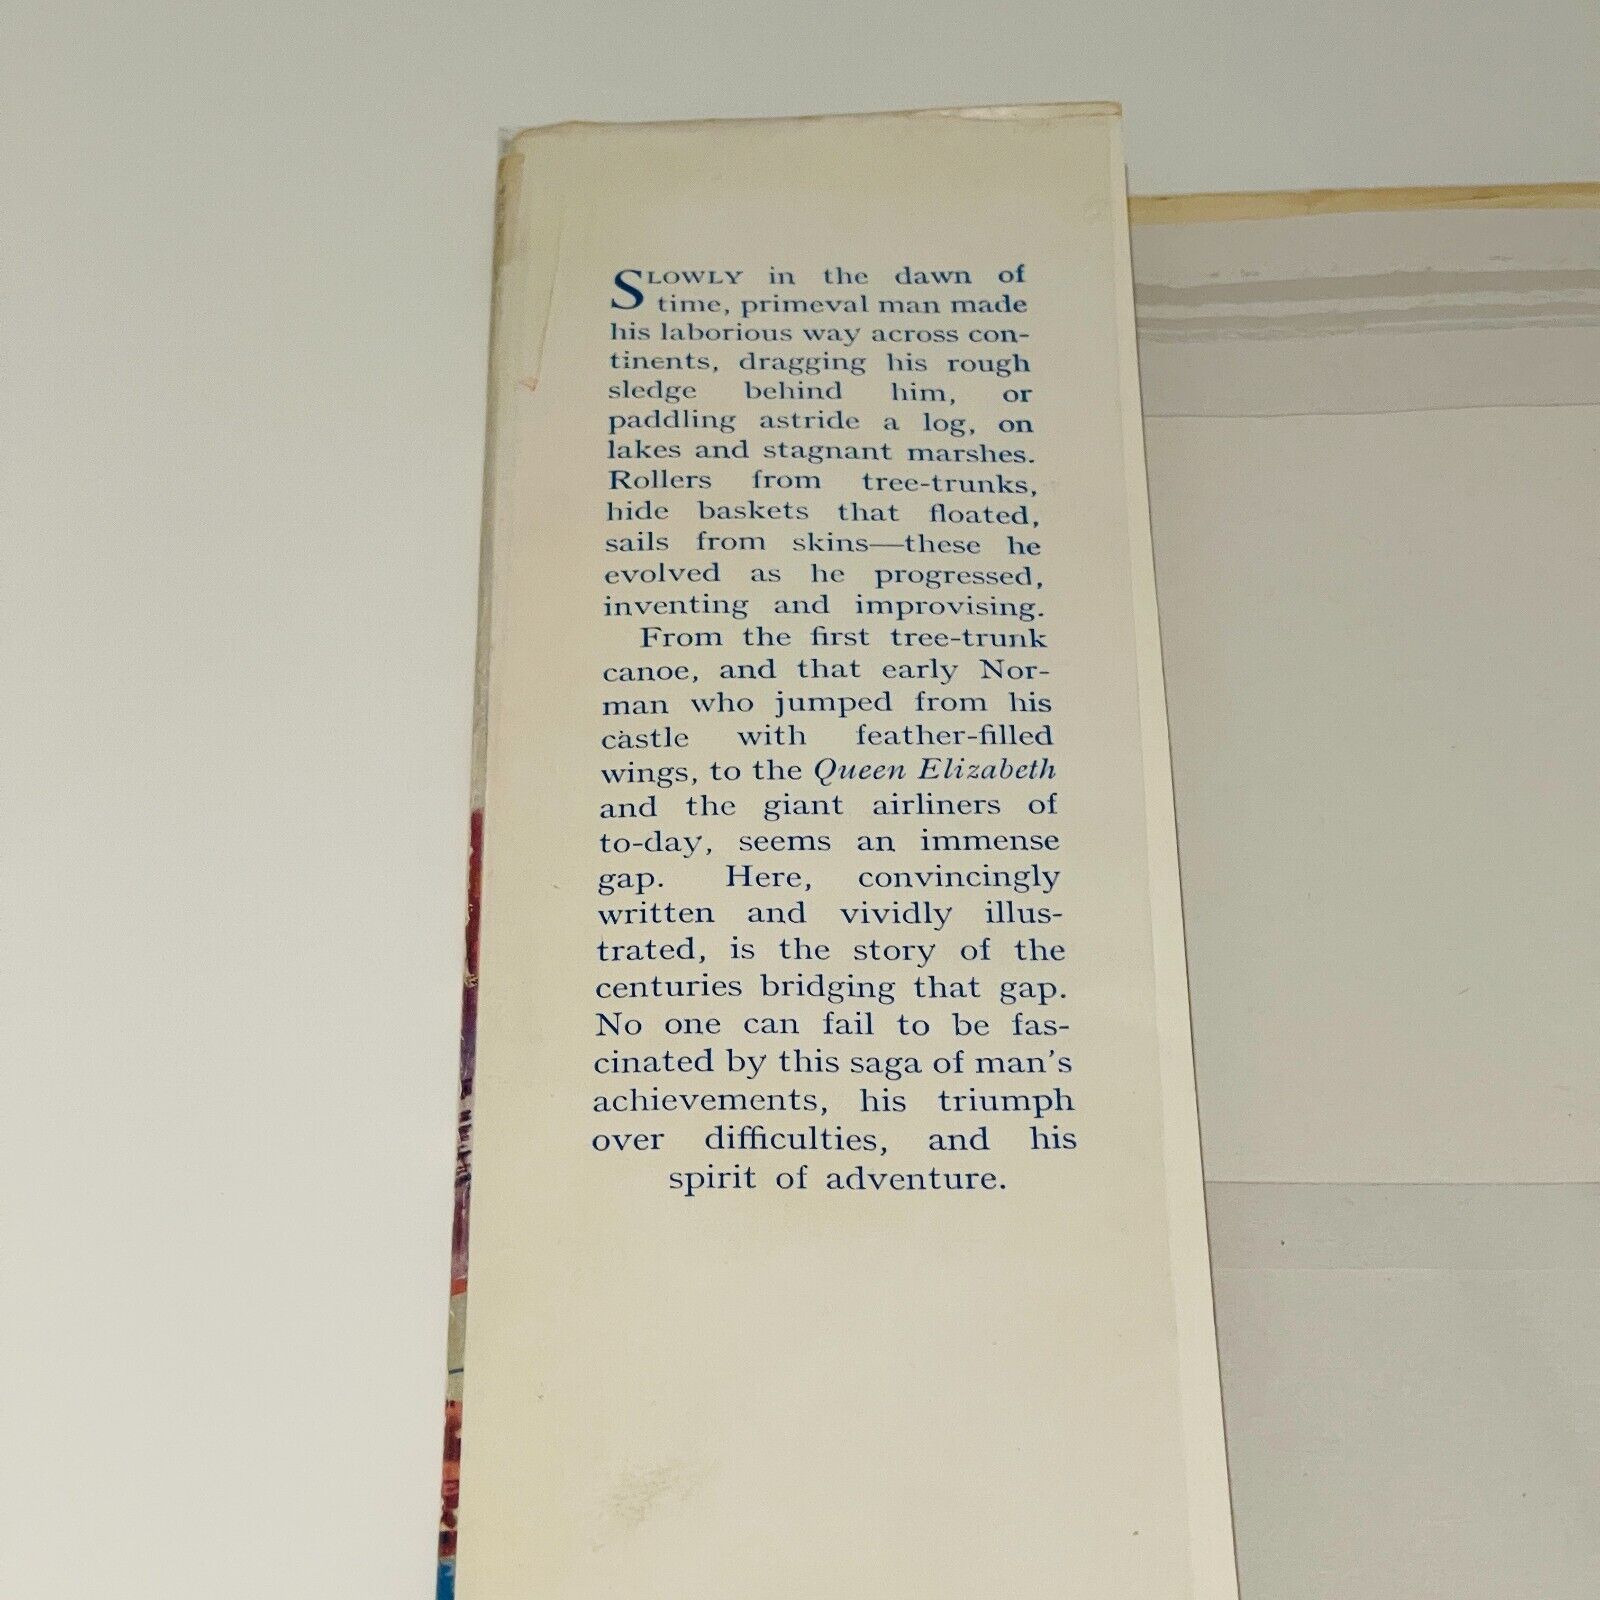 SLOWLY in the dawn of
time, primeval man made
his laborious way across con-
tinents, dragging his rough
sledge behind him, or
paddling astride a log, on
lakes and stagnant marshes.
Rollers from tree-trunks,
hide baskets that floated,
sails from skins—these he
evolved as he progressed,
inventing and improvising.
From the first tree-trunk
canoe, and that early Nor-
man who jumped from his
castle with feather-filled
wings, to the Queen Elizabeth
and the giant airliners of
to-day, seems an immense
gap. Here, convincingly
written and vividly illus-
trated, is the story of the
centuries bridging that gap.
No one can fail to be fas-
cinated by this saga of man's
achievements, his triumph
over difficulties, and his
spirit of adventure.